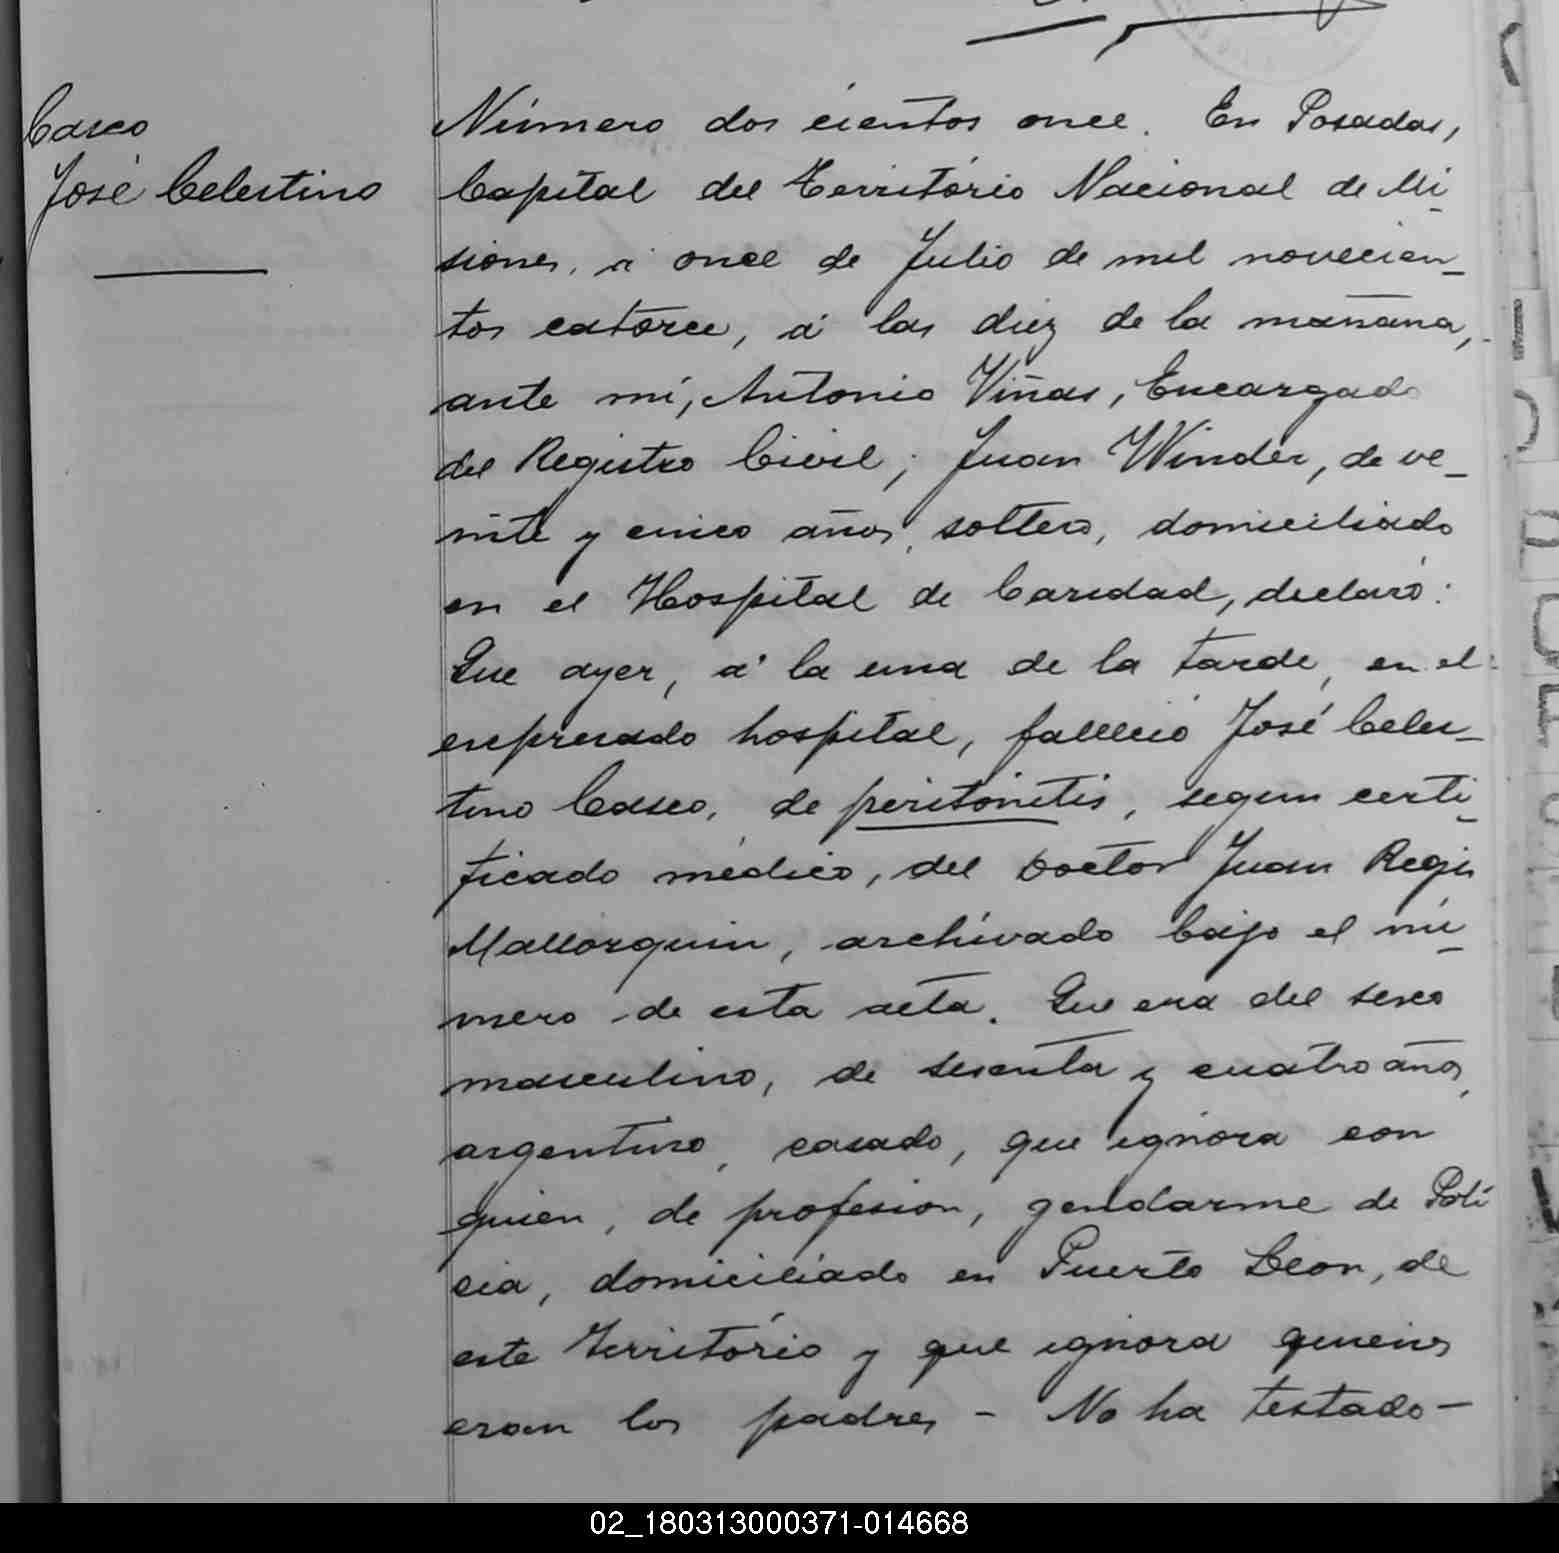 Casco
José Celestino
Número dos cientos once. En Posadas,
Capital del Território Nacional de Mi-
siones, á once de Julio de mil novecien-
tos catorce, á las diez de la mañana,
ante mí, Antonio Viñas, Encargado
del Registro Civil; Juan Winder, de ve-
inte y cinco años, soltero, domiciliado
en el Hospital de Caridad, declaró:
Que ayer, á la una de la tarde, en el
expresado hospital, falleció José Celes-
tino Casco, de peritónitis, segun certi-
ficado médico, del Doctor Juan Regis
Mallorquin, archivado bajo el nú-
mero de esta acta. Que era del sexo
masculino, de sesenta y cuatro años,
argentino, casado, que ignora con
quien, de profesion, gendarme de Poli
cia, domiciliado en Puerto Leon, de
este Território y que ignora quienes
eran los padres - No ha testado -
02_180313000371-014668